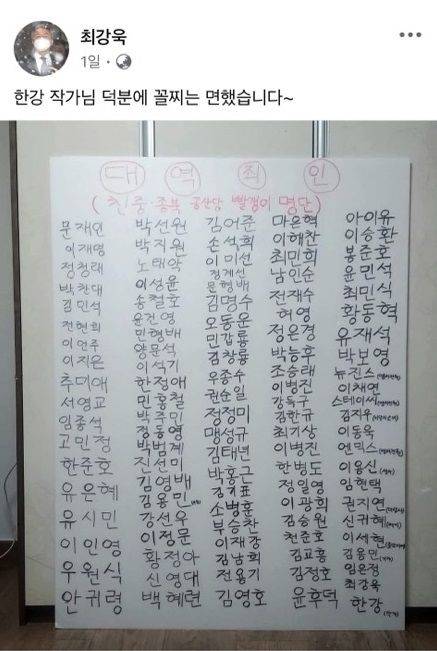 최강욱
1일
한강 작가님 덕분에 꼴찌는 면했습니다~
대역죄인
(친중·종북 공산당 빨갱이 명단)
문재인
이재명
정청래
박찬대
김민석
전현희
이언주
이지은
추미애
서영교
임종석
고민정
한준호
유은혜
유시민
이인영
우원식
안귀령
박선원
박지원
노태악
이성윤
송철호
윤건영
민형배
양문석
이석기
한정애
민홍철
박주민
정동영
박범계
진선미
김영배
김용민
강선우
이정문
황정아
신영대
백혜련
김어준
손석희
이미선
정계선
문형배
김명수
오동운
민갑룡
김창룡
우종수
권순일
정정미
맹성규
김태년
박홍근
김기표
소병훈
부승찬
이재강
김남희
전용기
김영호
마은혁
이해찬
최민희
남인순
전재수
허영
정은경
박능후
조승래
이병진
강득구
김한규
최기상
이병진
한병도
정일영
이광희
김승원
천준호
김교흥
김정호
윤후덕
아이유
이승환
봉준호
윤민석
최민식
황동혁
유재석
박보영
뉴진스
이채연
스테이씨
김지우
이동욱
엔믹스
이용신
임현택
권지연
신귀혜
이세현
김용민
임은정
최강욱
한강(작가)